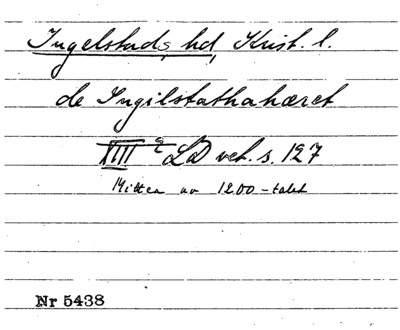 Ingelstads hd, Krist. l.
de Ingilstathahæret
XIII 2 LD vet. s. 127
Mitten av 1200-talet
Nr 5438